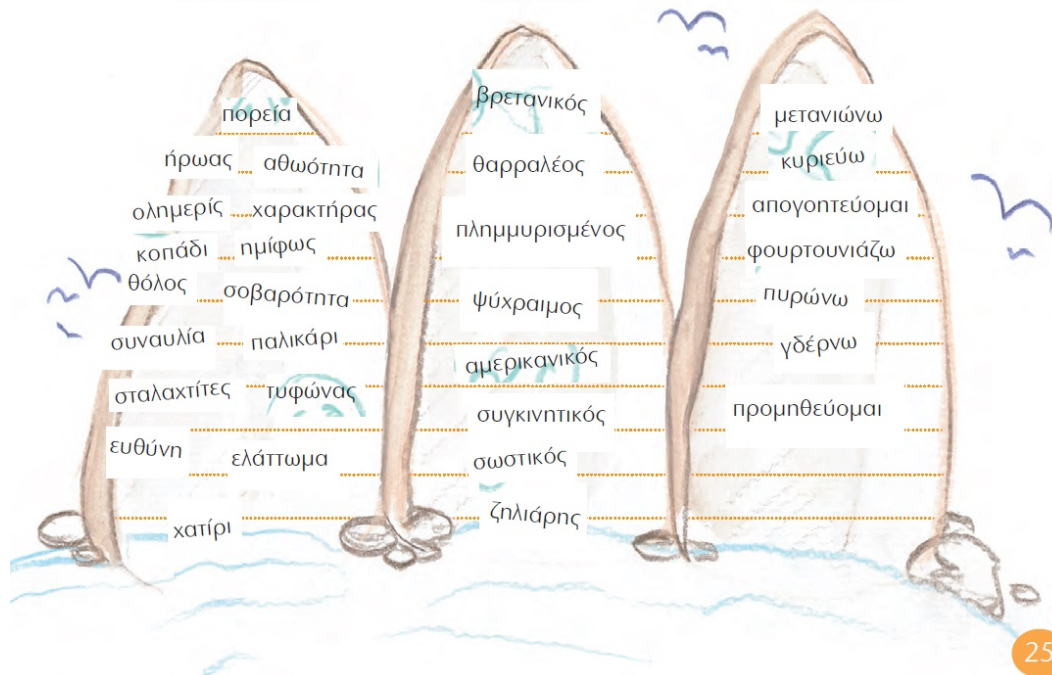 πορεία
ήρωας αθωότητα
ολημερίς χαρακτήρας
κοπάδι ημίφως
θόλος σοβαρότητα
συναυλία παλικάρι
σταλαχτίτες τυφώνας
ευθύνη ελάττωμα
χατίρι
βρετανικός
θαρραλέος
πλημμυρισμένος
ψύχραιμος
αμερικανικός
συγκινητικός
σωστικός
ζηλιάρης
μετανιώνω
κυριεύω
απογοητεύομαι
φουρτουνιάζω
πυρώνω
γδέρνω
προμηθεύομαι
25